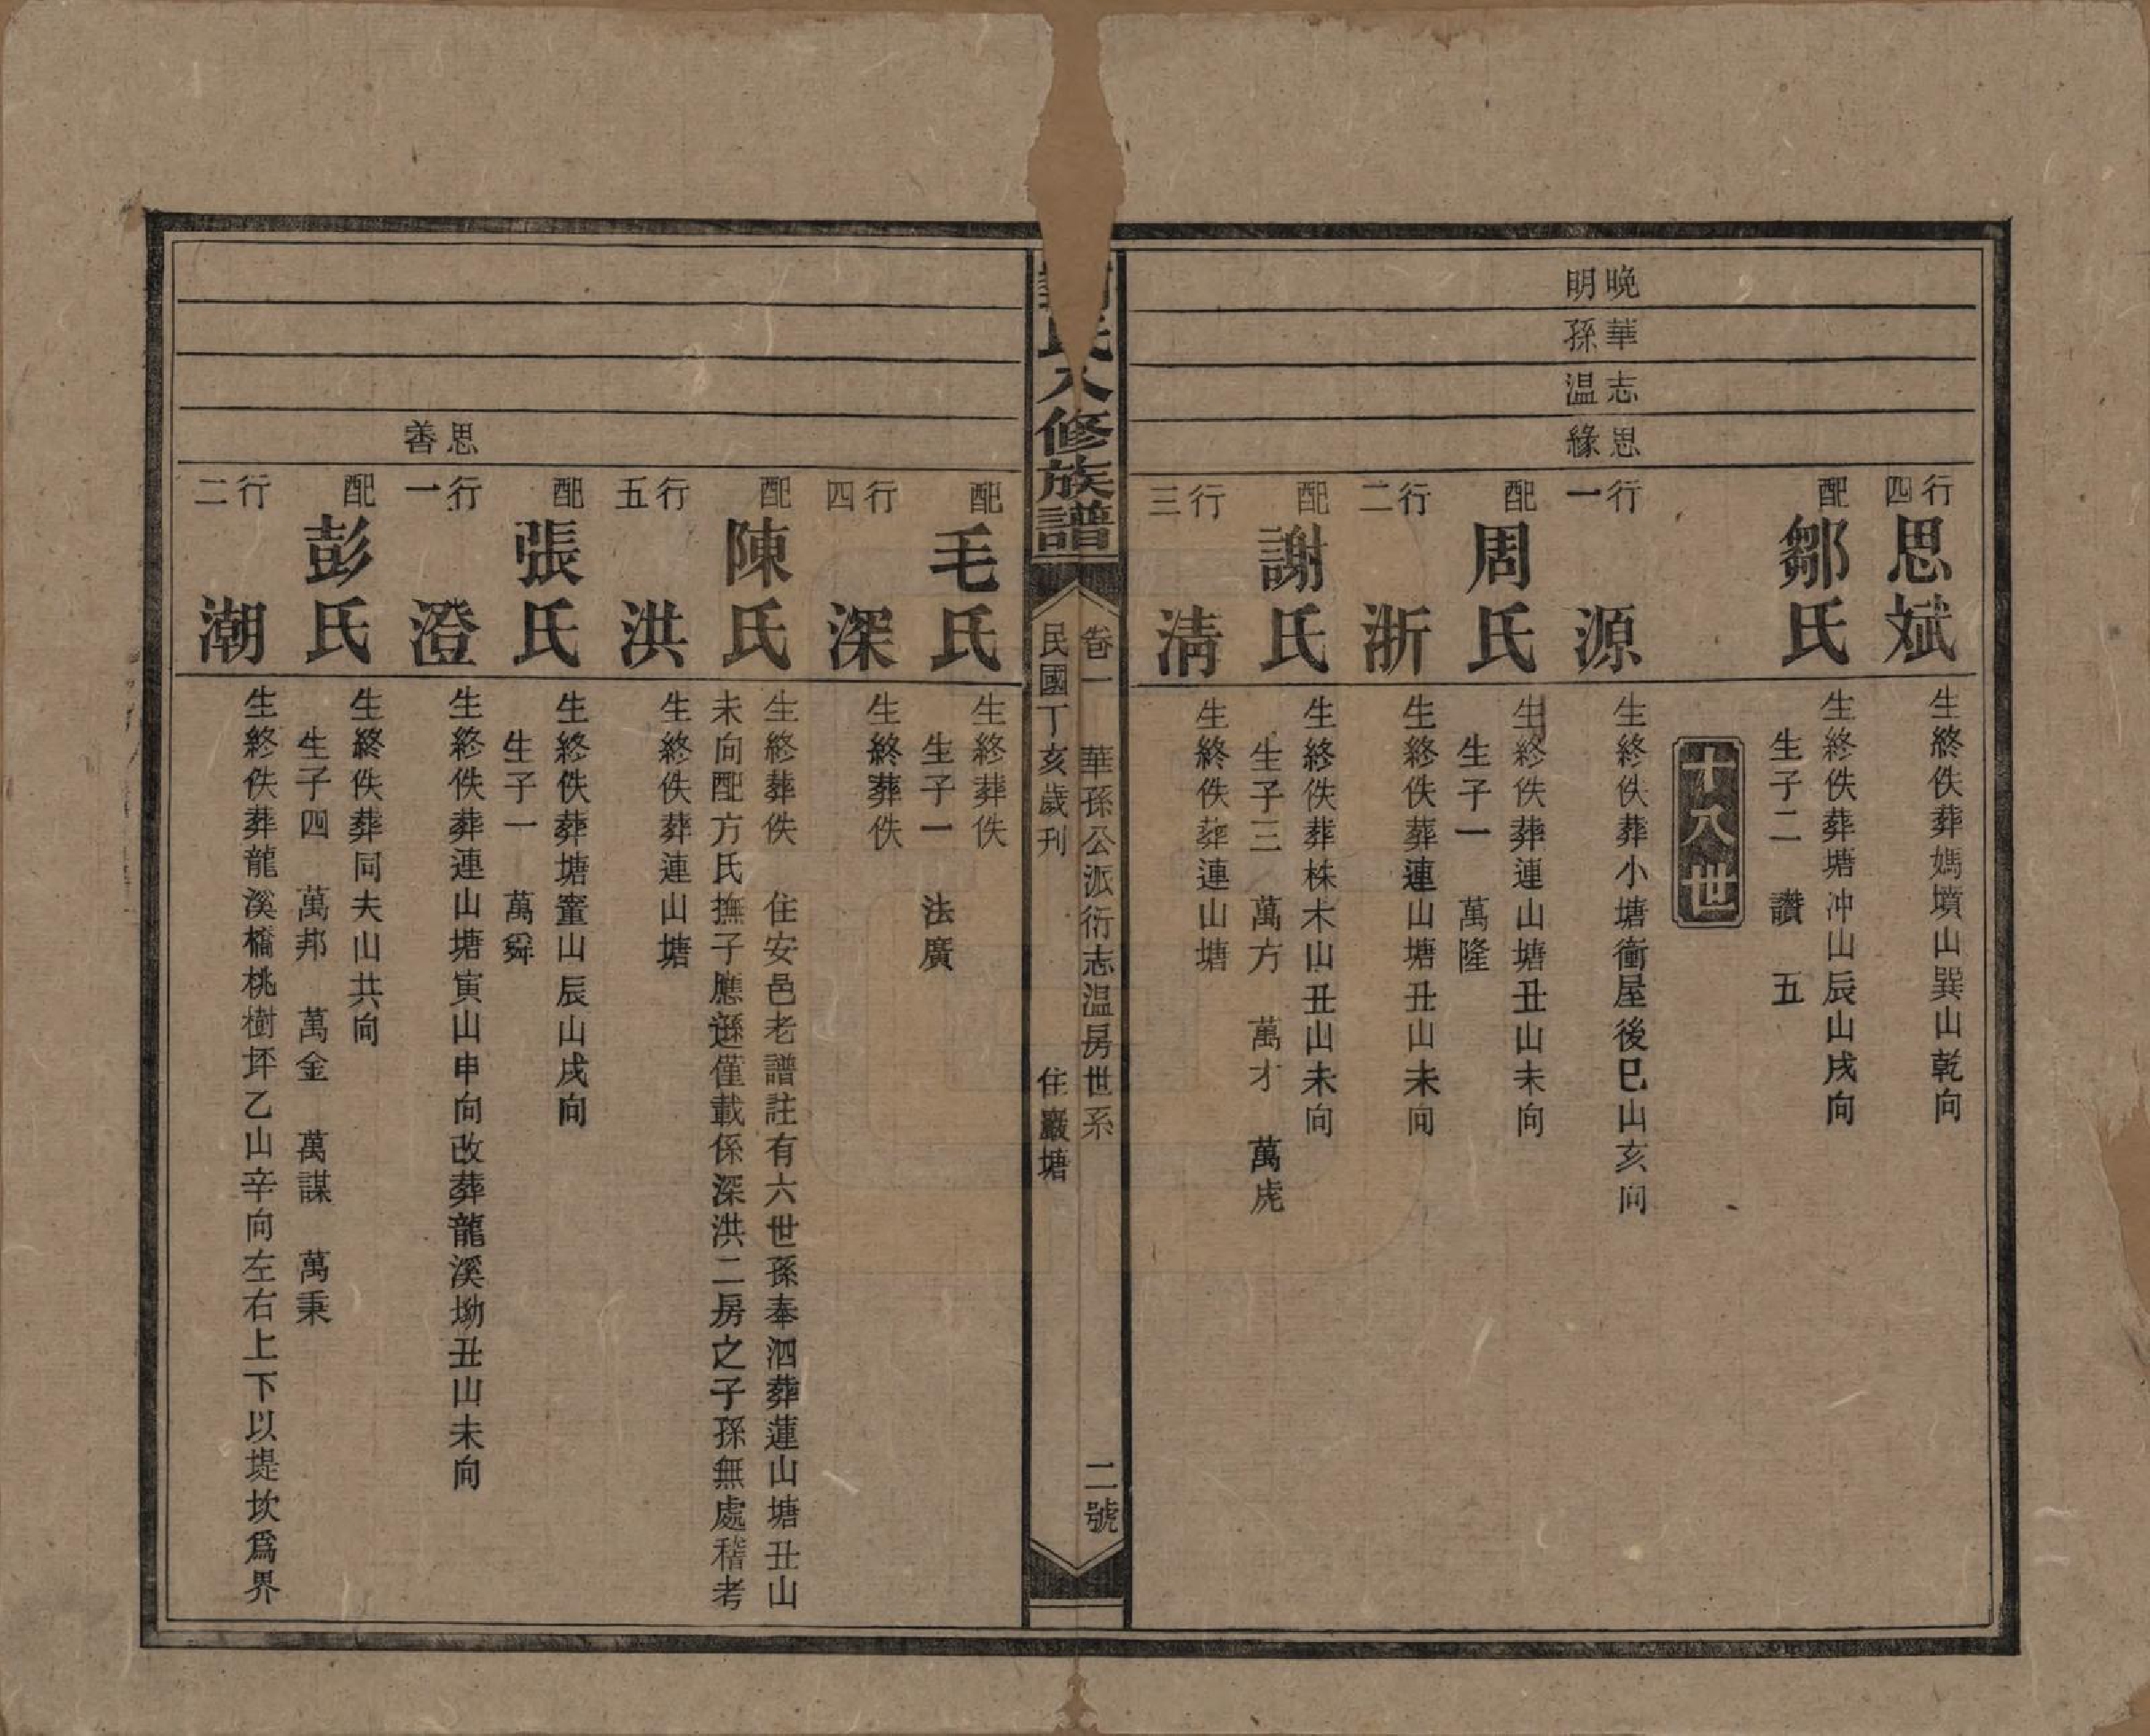 行四
思斌
生終佚葬媽墳山巽山乾向
配
鄒氏
生終佚葬塘冲山辰山戌向
生子二　讚　五
十八世
晚明
華孫
志温
思緣
行一
源
生終佚葬小塘衝屋後巳山亥向
配
周氏
生終佚葬連山塘丑山未向
生子一　萬隆
行二
浙
生終佚葬連山塘丑山未向
配
謝氏
生終佚葬株木山丑山未向
生子三　萬方　萬才　萬虎
行三
清
生終佚葬連山塘
氏八修族譜
卷一　華孫公派衍志温房世系　二號
民國丁亥歲刊　住巖塘
配
毛氏
生終葬佚
生子一　法廣
行四
深
生終葬佚
配
陳氏
生終葬佚　住安邑老譜註有六世孫奉泗葬蓮山塘丑山
未向配方氏撫子應遜僅載係深洪二房之子孫無處稽考
行五
洪
生終佚葬連山塘
配
張氏
生終佚葬塘窰山辰山戌向
生子一　萬舜
思善
行一
澄
生終佚葬連山塘寅山申向改葬龍溪坳丑山未向
配
彭氏
生終佚葬同夫山共向
生子四　萬邦　萬金　萬謀　萬秉
行二
潮
生終佚葬龍溪橋桃樹坪乙山辛向左右上下以堤坎爲界